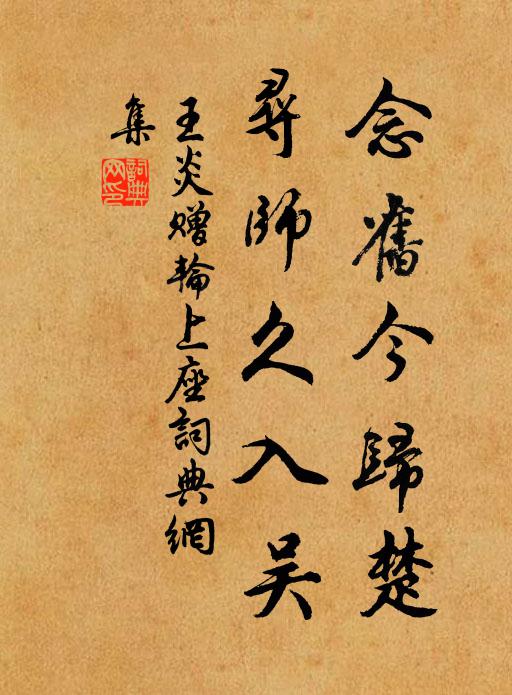 念舊今歸楚
尋師久入吳
王炎贈輪上座詞典網
集
詞典
网印